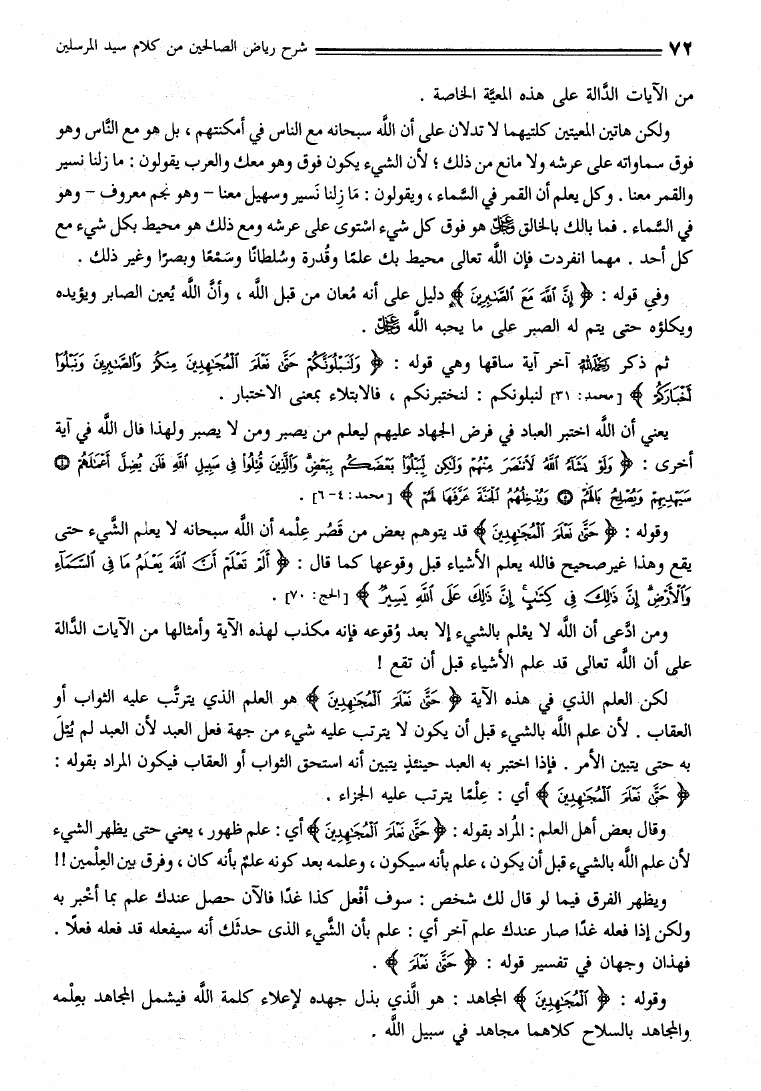 ٧٢ شرح رياض الصالحين من كلام سيد المرسلين
من الآيات الدَّالة على هذه المعيَّة الخاصة .
ولكن هاتين المعيتين كلتيهما لا تدلان على أن اللَّه سبحانه مع الناس في أمكنتهم ، بل هو مع النَّاس وهو
فوق سماواته على عرشه ولا مانع من ذلك ؛ لأن الشيء يكون فوق وهو معك والعرب يقولون : ما زلنا نسير
والقمر معنا . وكل يعلم أن القمر في السَّماء ، ويقولون : مَا زِلنا نَسير وسهيل معنا – وهو نجم معروف – وهو
في السَّماء . فما بالك بالخالق ﷻ هو فوق كل شيء اسْتوى على عرشه ومع ذلك هو محيط بكل شيء مع
كل أحد . مهما انفردت فإن اللَّه تعالى محيط بك علمًا وقُدرة وسُلطانًا وسَمْعًا وبصرًا وغير ذلك .
وفي قوله : ﴿ إِنَّ ٱللَّهَ مَعَ ٱلصَّٰبِرِينَ ﴾ دليل على أنه مُعان من قبل اللَّه ، وأنَّ اللَّه يُعين الصابر ويؤيده
ويكلؤه حتى يتم له الصبر على ما يحبه اللَّه ﷻ .
ثم ذكر رَحِمَهُ اللَّه آخر آية ساقها وهي قوله : ﴿ وَلَنَبْلُوَنَّكُمْ حَتَّىٰ نَعْلَمَ ٱلْمُجَٰهِدِينَ مِنكُمْ وَٱلصَّٰبِرِينَ وَنَبْلُوَا۟
أَخْبَارَكُمْ ﴾ [ محمد : ٣١] لنبلونكم : لنختبرنكم ، فالابتلاء بمعنى الاختبار .
يعني أن اللَّه اختبر العباد في فرض الجهاد عليهم ليعلم من يصبر ومن لا يصبر ولهذا قال اللَّه في آية
أخرى : ﴿ وَلَوْ يَشَآءُ ٱللَّهُ لَٱنتَصَرَ مِنْهُمْ وَلَٰكِن لِّيَبْلُوَا۟ بَعْضَكُم بِبَعْضٍ وَٱلَّذِينَ قُتِلُوا۟ فِى سَبِيلِ ٱللَّهِ فَلَن يُضِلَّ أَعْمَٰلَهُمْ ۝
سَيَهْدِيهِمْ وَيُصْلِحُ بَالَهُمْ ۝ وَيُدْخِلُهُمُ ٱلْجَنَّةَ عَرَّفَهَا لَهُمْ ﴾ [ محمد : ٤–٦] .
وقوله : ﴿ حَتَّىٰ نَعْلَمَ ٱلْمُجَٰهِدِينَ ﴾ قد يتوهم بعض من قَصُر عِلْمه أن اللَّه سبحانه لا يعلم الشَّيء حتى
يقع وهذا غيرصحيح فالله يعلم الأشياء قبل وقوعها كما قال : ﴿ أَلَمْ تَعْلَمْ أَنَّ ٱللَّهَ يَعْلَمُ مَا فِى ٱلسَّمَآءِ
وَٱلْأَرْضِ إِنَّ ذَٰلِكَ فِى كِتَٰبٍ إِنَّ ذَٰلِكَ عَلَى ٱللَّهِ يَسِيرٌ ﴾ [ الحج : ٧٠] .
ومن ادَّعى أن اللَّه لا يعْلم بالشيء إلا بعد وُقوعه فإنه مكذب لهذه الآية وأمثالها من الآيات الدَّالة
على أن اللَّه تعالى قد علم الأشياء قبل أن تقع !
لكن العلم الذي في هذه الآية ﴿ حَتَّىٰ نَعْلَمَ ٱلْمُجَٰهِدِينَ ﴾ هو العلم الذي يترتَّب عليه الثواب أو
العقاب . لأن علم اللَّه بالشيء قبل أن يكون لا يترتب عليه شيء من جهة فعل العبد لأن العبد لم يُبْلَ
به حتى يتبين الأمر . فإذا اختبر به العبد حينئذٍ يتبين أنه استحق الثواب أو العقاب فيكون المراد بقوله :
﴿ حَتَّىٰ نَعْلَمَ ٱلْمُجَٰهِدِينَ ﴾ أي : عِلْمًا يترتب عليه الجزاء .
وقال بعض أهل العلم : المُراد بقوله : ﴿ حَتَّىٰ نَعْلَمَ ٱلْمُجَٰهِدِينَ ﴾ أي : علم ظهور ، يعني حتى يظهر الشيء
لأن علم اللَّه بالشيء قبل أن يكون ، علم بأنه سيكون ، وعلمه بعد كونه علمٌ بأنه كان ، وفرق بين العِلْمين !!
ويظهر الفرق فيما لو قال لك شخص : سوف أفْعل كذا غدًا فالآن حصل عندك علم بما أخْبر به
ولكن إذا فعله غدًا صار عندك علم آخر أي : علم بأن الشَّيء الذى حدثَك أنه سيفعله قد فعله فعلًا .
فهذان وجهان في تفسير قوله : ﴿ حَتَّىٰ نَعْلَمَ ﴾ .
وقوله : ﴿ ٱلْمُجَٰهِدِينَ ﴾ المجاهد : هو الَّذي بذل جهده لإعلاء كلمة اللَّه فيشمل المجاهد بعِلْمه
والمجاهد بالسلاح كلاهما مجاهد في سبيل اللَّه .